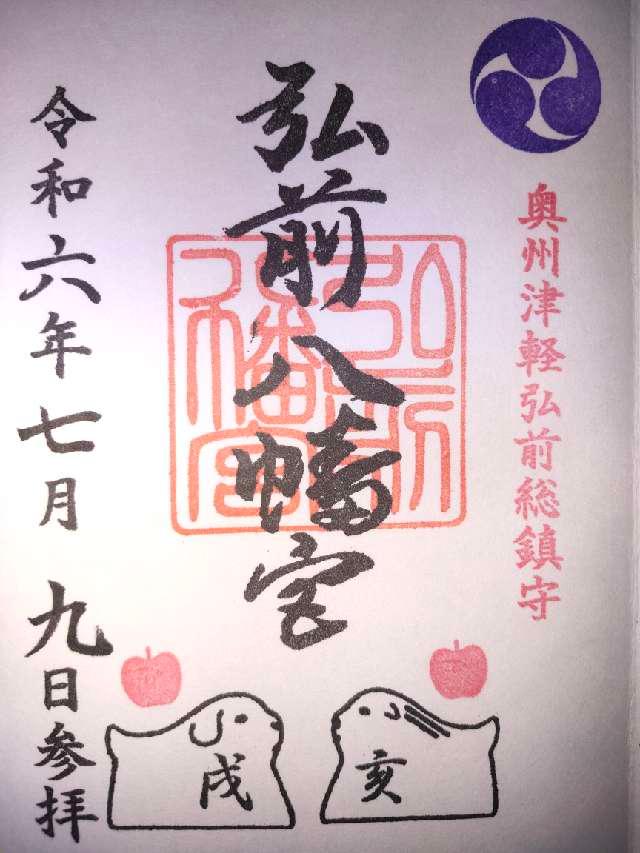 奥州津軽弘前総鎮守
弘前八幡宮
弘前八幡宮
令和六年七月九日参拝
戌
亥